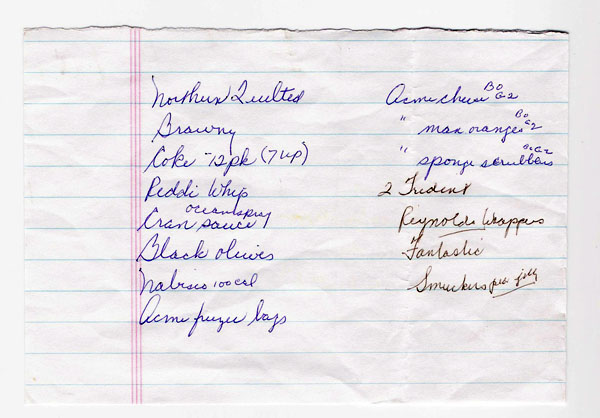 Northern Quilted
Brawny
Coke - 12pk (7up)
Reddi Whip
oceanspray
Cran sauce
Black olives
Nabisco 100 cal
Acme freezer bags
Acme cheese BOG2
" man oranges BOG2
" sponge scrubbers BOG2
2 Trident
Reynolds Wrappers
Fantastic
Smuckers jelly